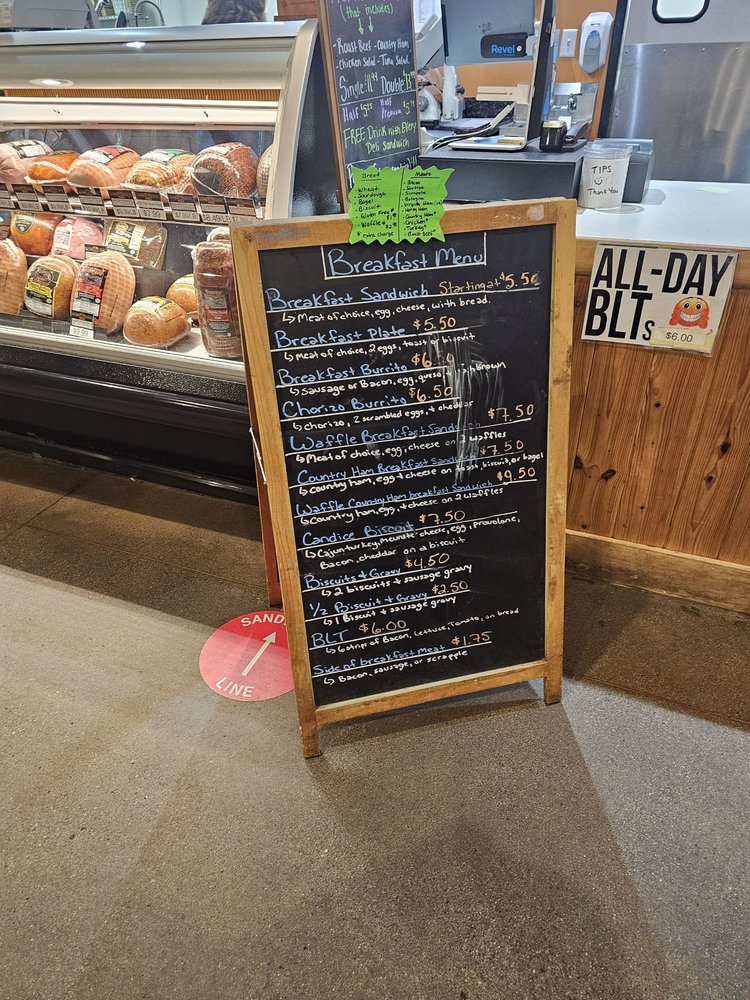 (that includes)
-Roast Beef -Country Ham
-Chicken Salad -Tuna Salad
Single $11.99 Double $13.99
Half $5.25 Half Premium
FREE Drink with Every
Deli Sandwich
Revel
TIPS
Thank You
Bread
Wheat
Sourdough
Bagel
Biscuit
Gluten Free
Waffle
extra charge
Meats
Bacon
Sausage
Scrapple
Bologna
Country Ham
Chicken
Turkey
Roast Beef
Breakfast Menu
Breakfast Sandwich Starting at $5.50
Meat of choice, egg, cheese, with bread.
Breakfast Plate $5.50
Meat of choice, 2 eggs, toast or biscuit
Breakfast Burrito $6.50
Sausage or Bacon, egg, queso, + hashbrown
Chorizo Burrito $6.50
chorizo, 2 scrambled eggs, + cheddar
Waffle Breakfast Sandwich $7.50
Meat of choice, egg, cheese on 2 waffles
Country Ham Breakfast Sandwich $7.50
country ham, egg + cheese on toast, biscuit, or bagel
Waffle Country Ham breakfast Sandwich $9.50
Country ham, egg, + cheese on 2 waffles
Candice Biscuit $7.50
Cajun turkey, meunster cheese, egg, provolone,
Bacon, cheddar on a biscuit
Biscuits + Gravy $4.50
2 biscuits + sausage gravy
1/2 Biscuit + Gravy $2.50
1 Biscuit + sausage gravy
BLT $6.00
6 strips of Bacon, Lettuce, Tomato, on bread
Side of breakfast meat $1.75
Bacon, sausage, or scrapple
ALL-DAY
BLTs
$6.00
SAND
LINE
$9.99